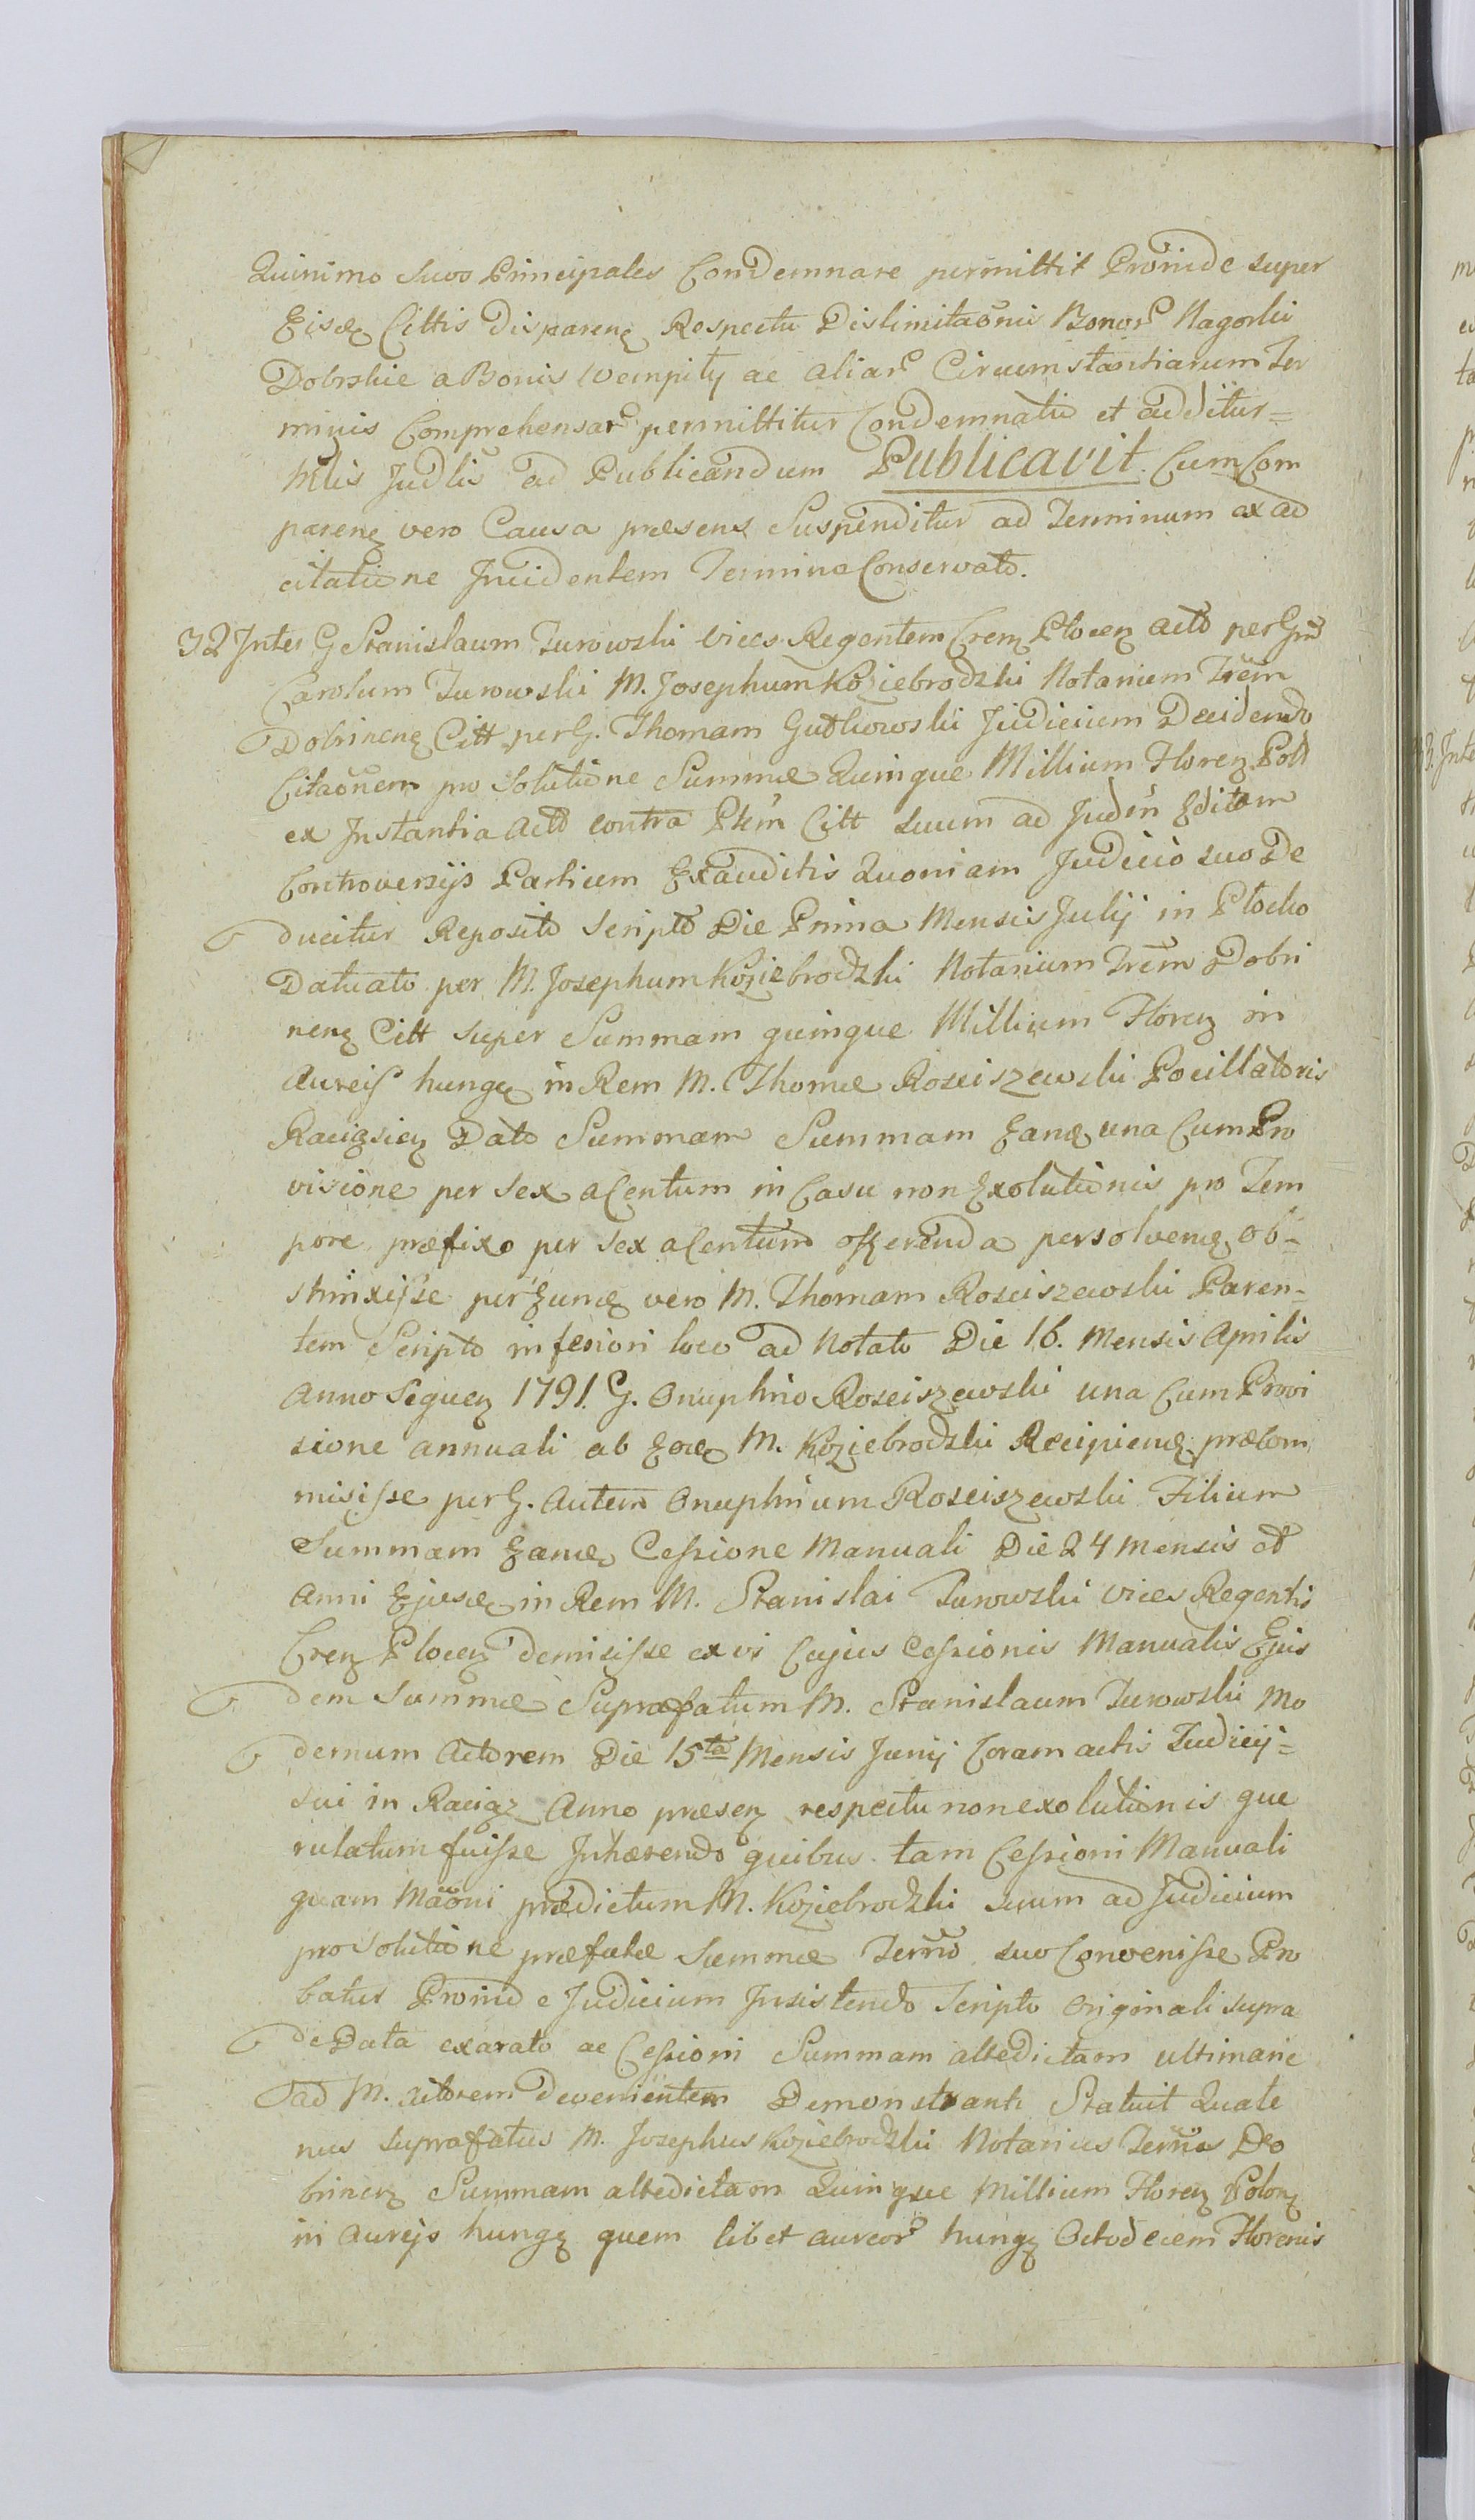 Quinimo Suos Principales Condemnare permittit Proinde super
Eisdę Cittis disparenę Respectu Dislimitaōnis Bonorͫ Nagorki
Dobrskie a Bonis Wempiły ac aliarͫ Circumstantiarum Ter
minis Comprehensarͫ permittitur Condemnatio et additur=
Mtis Judlis ad Publicandum Publicavit. Cum Com
parenę vero Causa præsens Suspenditur ad Terminum ex ad
citatione Incidentem Termino Conservato.
32 Inter G Stanislaum Turowski Vices Regentem Crenę Plocenę Acto per Gnd
Carolum Turowski M. Josephum Koziebrodzki Notarium Trēm
Dobrinenę Citt per G. Thomam Gutkowski Judicium Decidendo
Citaōnem pro Solutione Summæ Quinque Millium Florenę Poll
ex Instantia Acto contra Ptem Citt suum ad Judm Editam
Controversijs Partium Exauditis Quoniam Judicio suo De
ducitur Reposito Scripto Die Prima Mensis Julij in Płocko
Datuato per M. Josephum Koziebrodzki Notarium Trēm Dobri
nenę Citt super Summam quinque Millium Florenę in
Aureis hungę in Rem M. Thomæ Rosciszewski Pocillatoris
Raciązienę Dato Summam Summam Eandę una Cum Pro
visione per Sex a Centum in Casu non Exolutionis pro Tem
pore præfixo per Sex a Centum offerenda persolvendę ob-
strinxisse per Eundę vero M. Thomam Rosciszewski Paren-
tem Scripto inferiori loco ad Notato Die 16. Mensis Aprilis
Anno Sequenę 1791 G. Onuphrio Rosciszewski una Cum Provi
sione annuali ab Eodę M. Koziebrodzki Recipiendę præcom
misisse per G. Autem Onuphrium Rosciszewski Filium
Summam Eandę Cessione Manuali Die 24 Mensis et
Anni Ejusdę in Rem M. Stanislai Turowski Vices Regentis
Crenę Plocenę demisisse ex vi Cujus Cessionis Manualis Ejus
dem Summæ Supræfatum M. Stanislaum Turowski Mo
dernum Actorem Die 15ta Mensis Junij Coram actis Judicij=
sui in Raciąz Anno præsenę respectu non exolutionis que
rulatum fuisse Inhærendo quibus tam Cessioni Manuali
quam Māōni prædictum M. Koziebrodzki suum ad Judicium
pro Solutione præfatæ Summæ Termo suo Convenisse Pro
batur Proind e Judicium Insistendo Scripto Originali supra
de Data exarato ac Cessioni Summam altedictam ultimarie
ad M. Actorem Devenientem Demonstranti Statuit Quate
nus Suprafatus M. Josephus Koziebrodzki Notarius Terris Do
brinenę Summam altedictam Quinque Millium Florenę Polonę
in Aurejs hungę quem libet aureorͫ hungę Octodecem Florenis